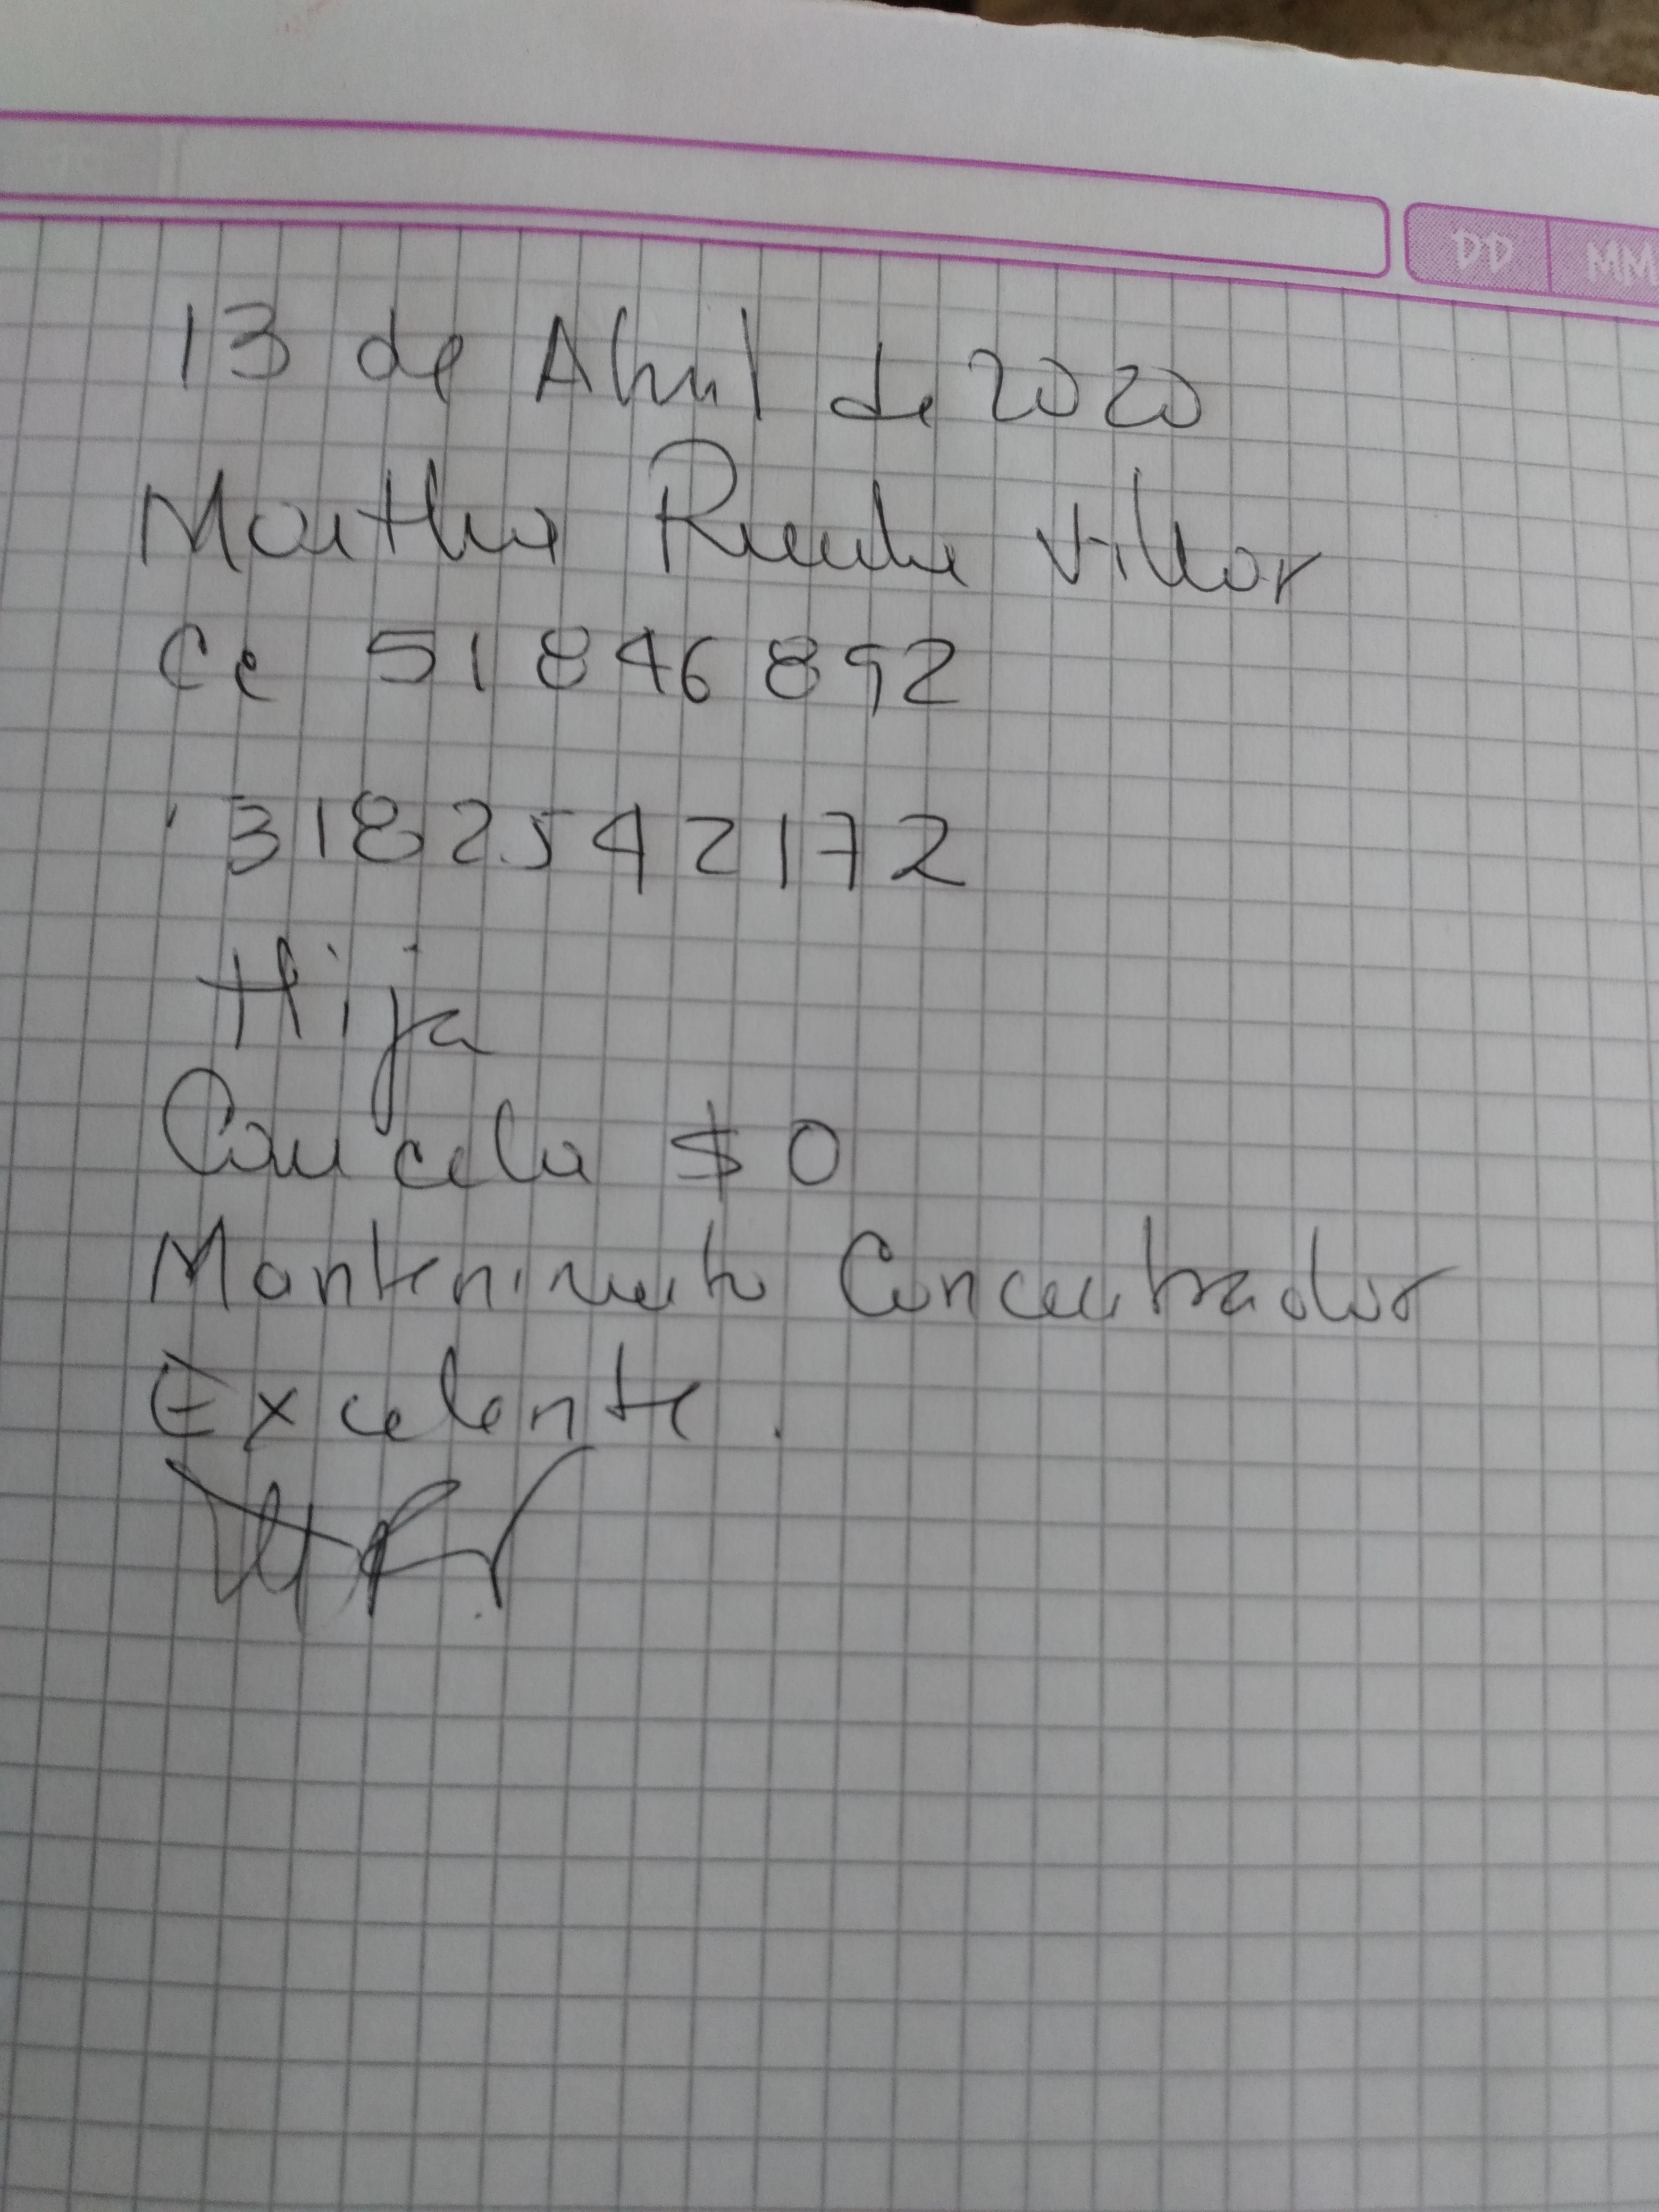 DD MM
13 de Abril de 2020
Martha Rueda Villar
CC 51846892
3182542172
Hija
Cancela $ 0
Mantenimiento Concentrador
Excelente.